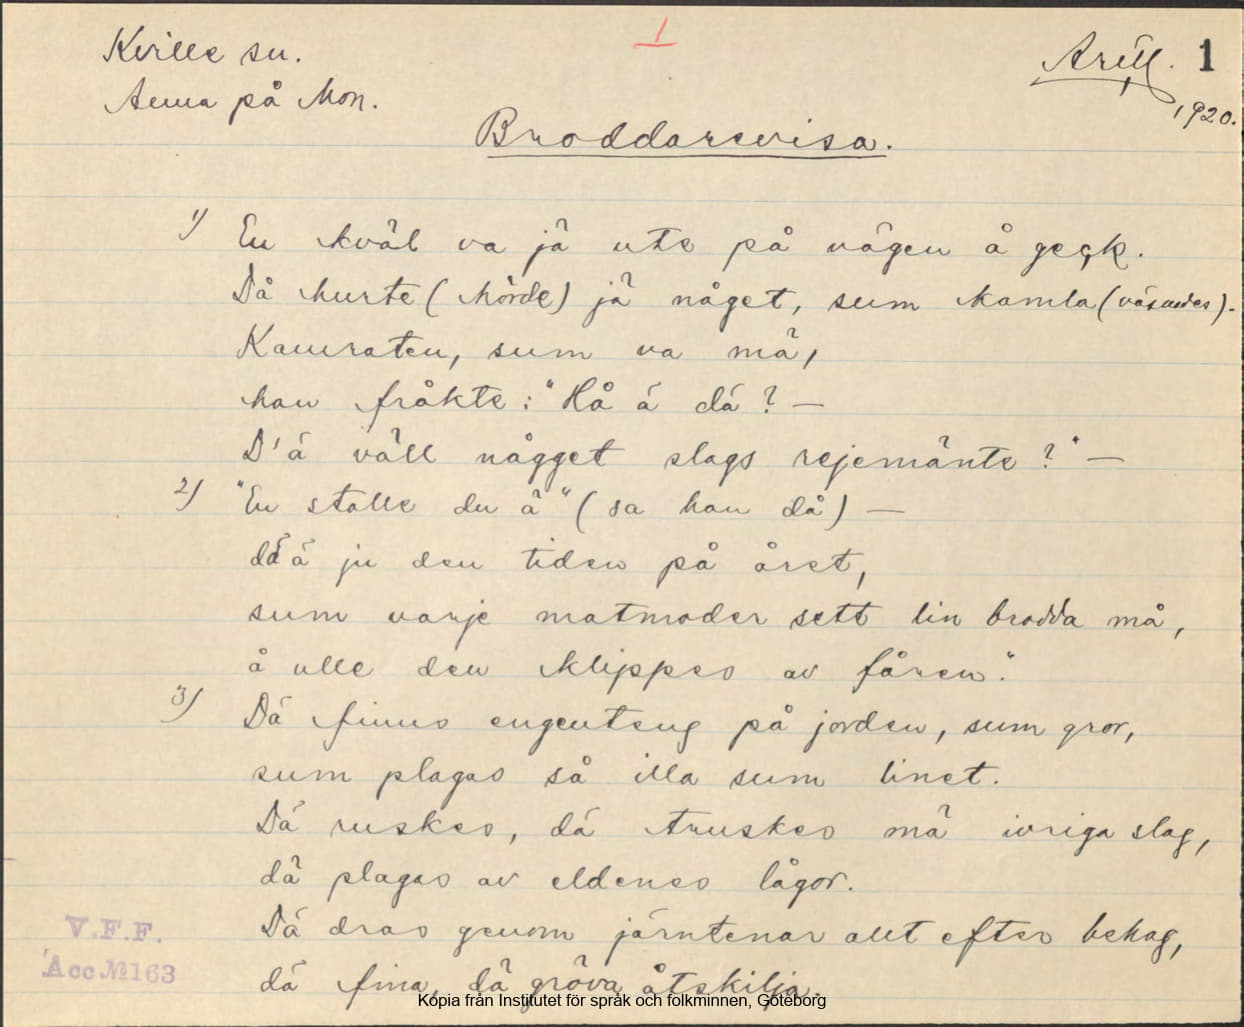 1
Kville sn.
Arill. 1
Anna på Mon.
1920.
Broddarevisa.
1) En kväl va jä ute på vägen å geck.
Då hurte (hörde) jä någet, sum kamla (väsnades).
Kamraten, sum va mä,
han fråkte: "Hå ä dä? —
D'ä väll någget slags rejemänte?" —
2) "En stolle du ä" (sa han då) —
dä ä ju den tiden på året,
sum varje matmoder sett lin brodda må,
å ulle den klippes av fåren."
3) Dä finns engenteng på jorden, sum gror,
sum plagas så illa sum linet.
Dä ruskes, dä truskes mä ivriga slag,
dä plagas av eldens lågor.
Dä dras genom järntenar allt efter behag,
dä fina, dä gröva åtskilja.
V.F.F.
Acc. № 163
Kopia från Institutet för språk och folkminnen, Göteborg